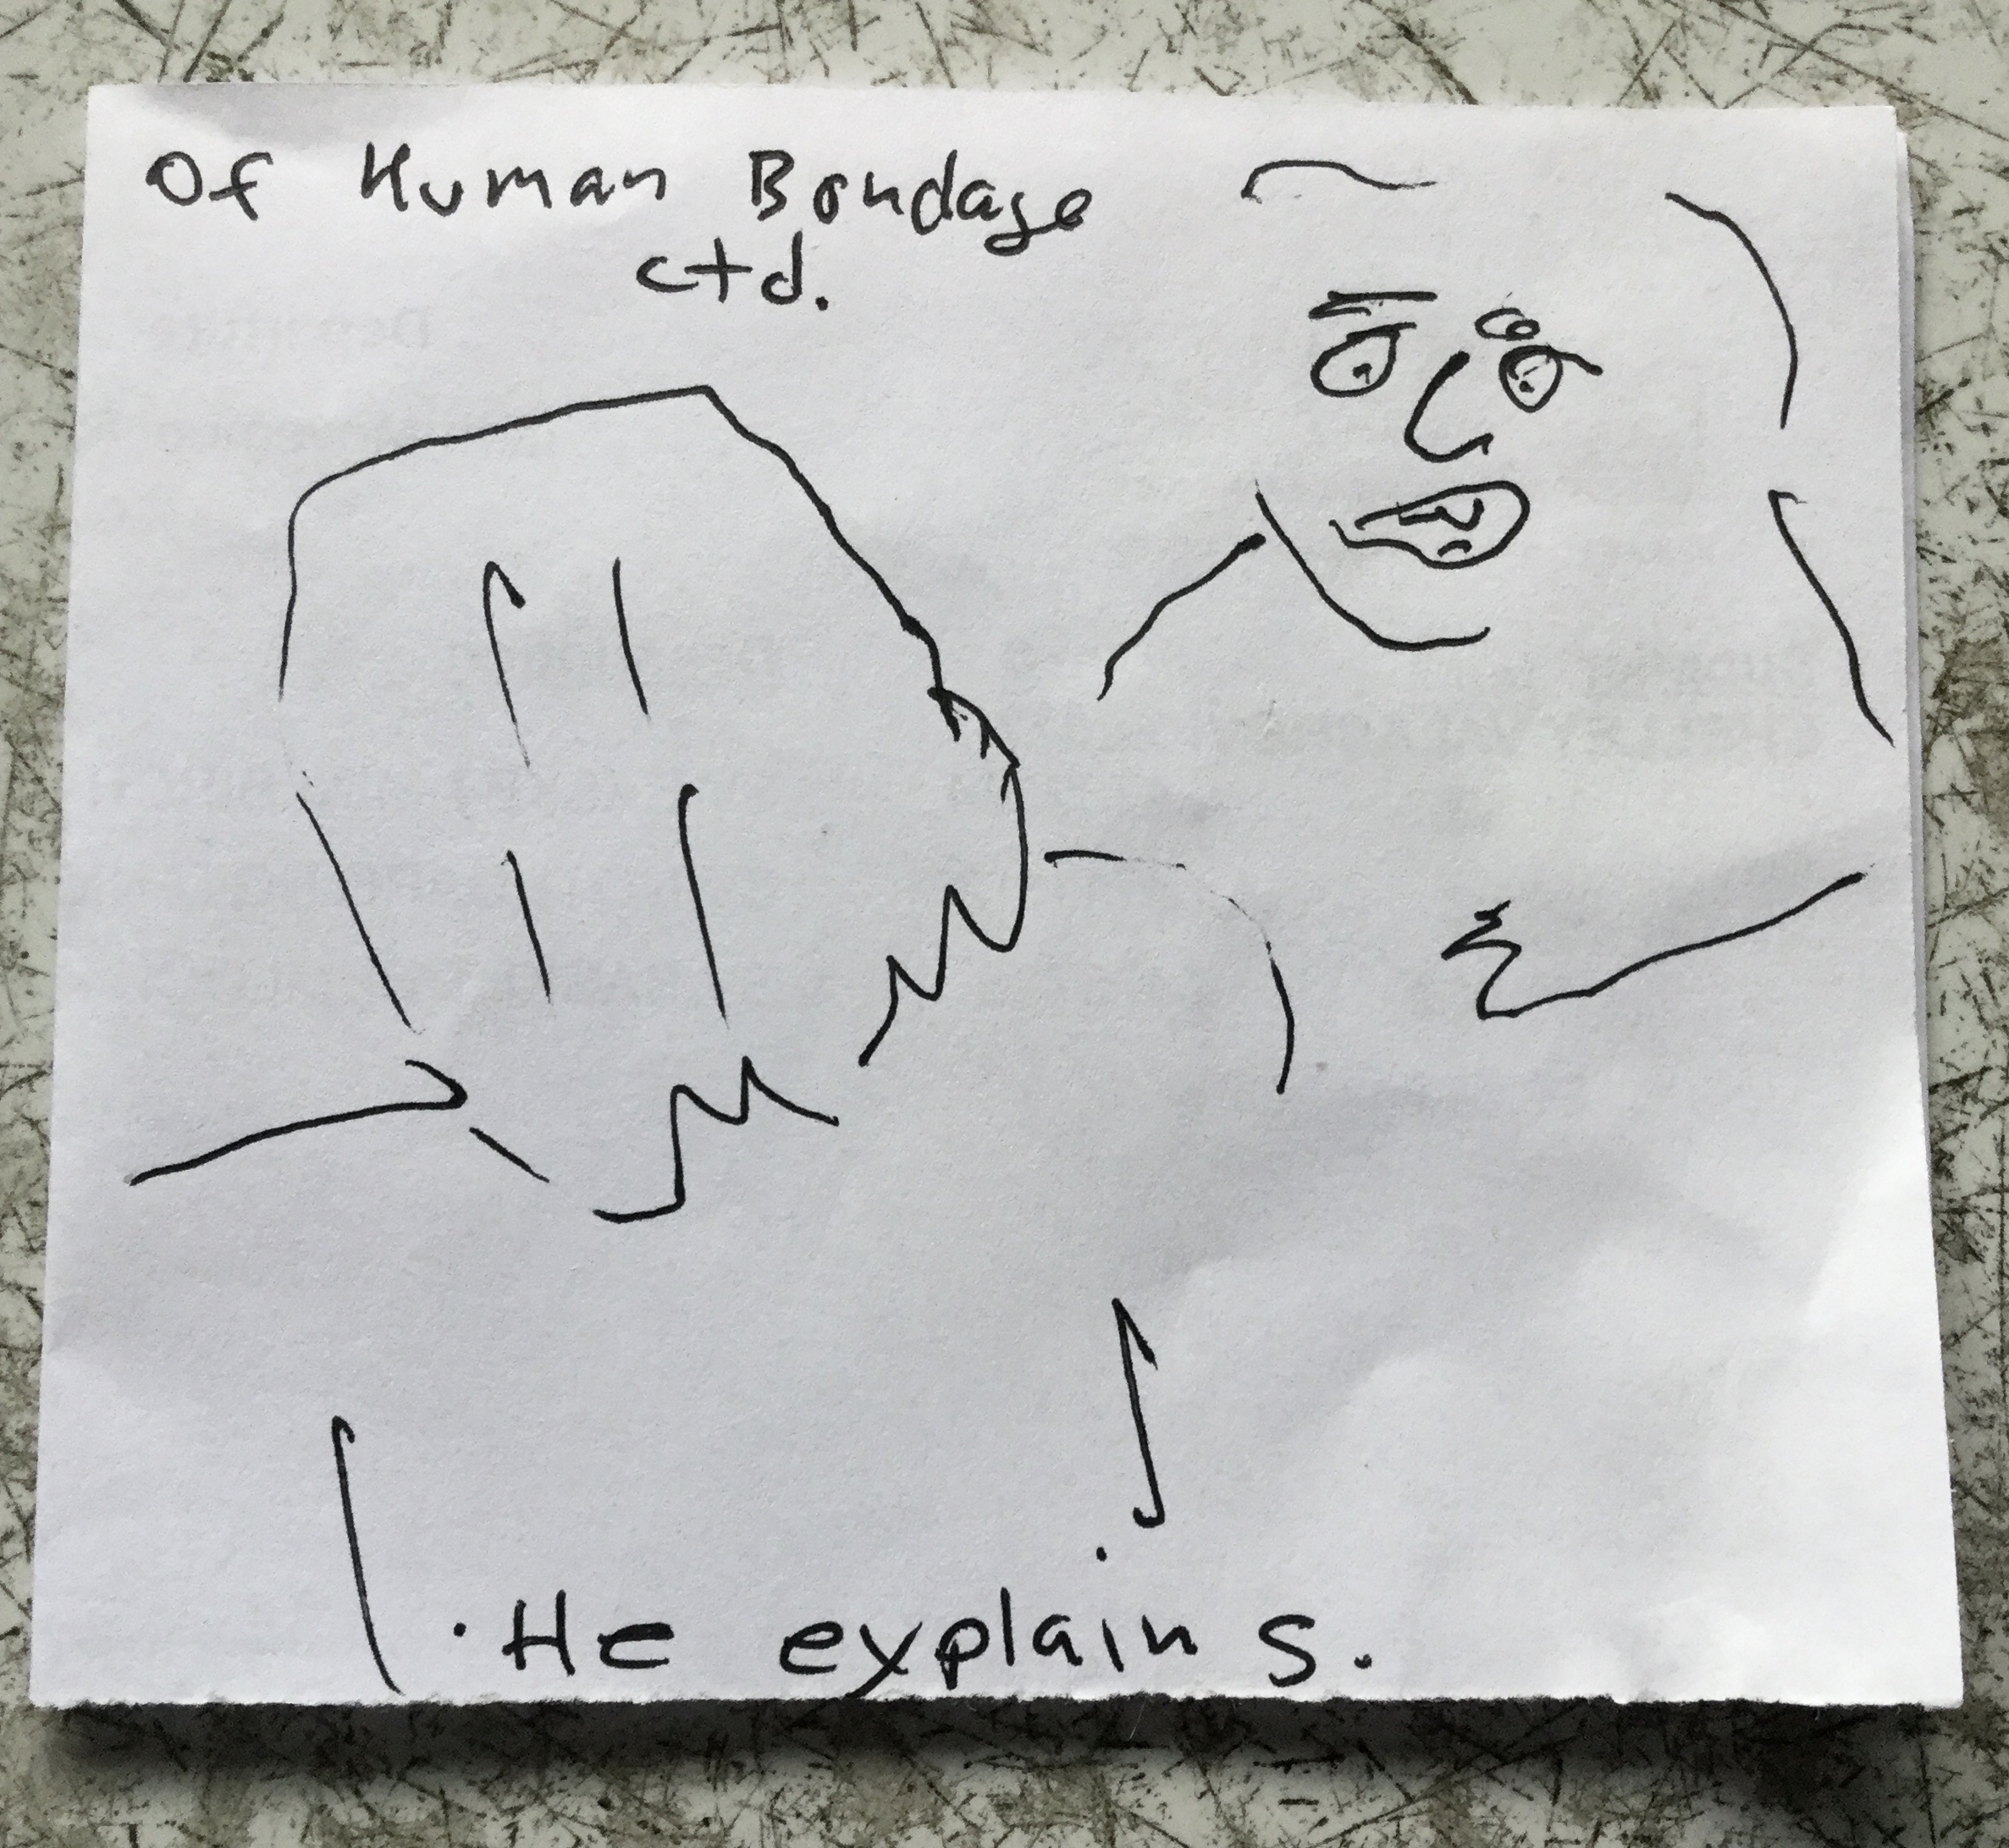 Of Human Bondage
ctd.
He explains.